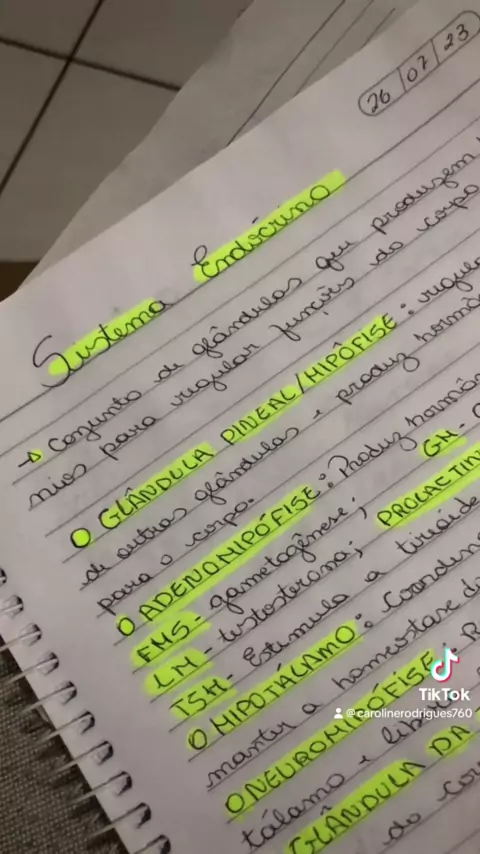 26/07/23
Sistema Endócrino
→ Conjunto de glândulas que produzem
nios para regular funções do corpo
GLÂNDULA PINEAL/HIPÓFISE: regula
de outras glândulas e produz hormô
para o corpo.
ADENOHIPÓFISE: Produz hormôn
GH-
FMS- gametogênese;
PROLACTIN
LH- testosterona;
TSH- Estimula a tireóide
HIPOTÁLAMO: Coordena
manter a homeostase d
NEUROHIPÓFISE: R
tálamo e lib
GLÂNDULA DA
do cor
TikTok
@carolinerodrigues760